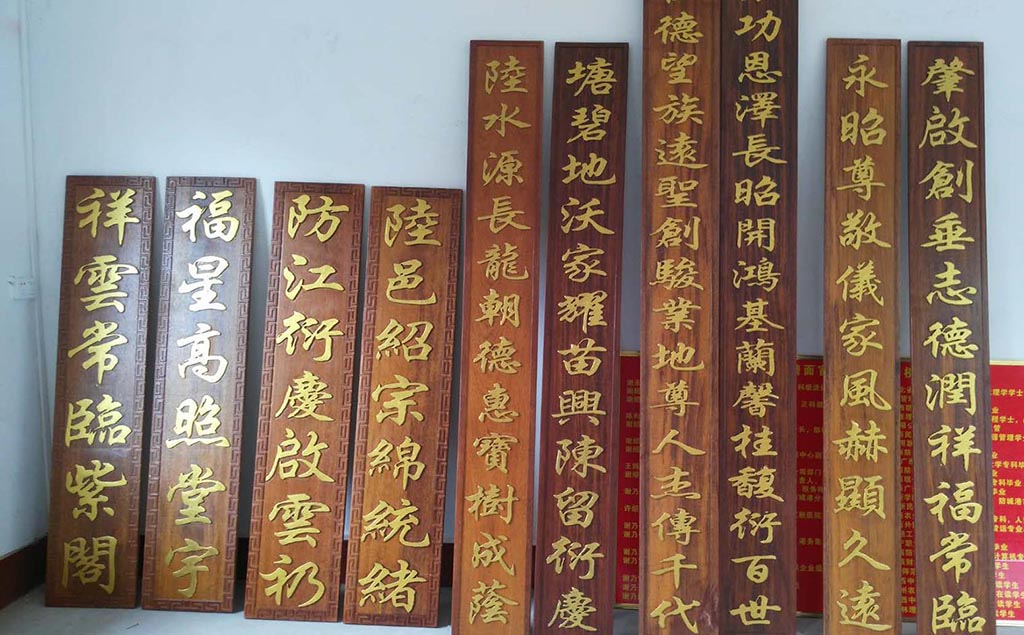 肇啟創垂志德潤祥福常臨
永昭尊敬儀家風赫顯久遠
功恩澤長昭開鴻基蘭馨桂馥衍百世
德望族遠聖創駿業地尊人杰傳千代
塘碧地沃家耀苗興陳留衍慶
陸水源長龍朝德惠寶樹成蔭
陸邑紹宗綿統緒
防江衍慶啟雲礽
福星高照堂宇
祥雲常臨紫閣